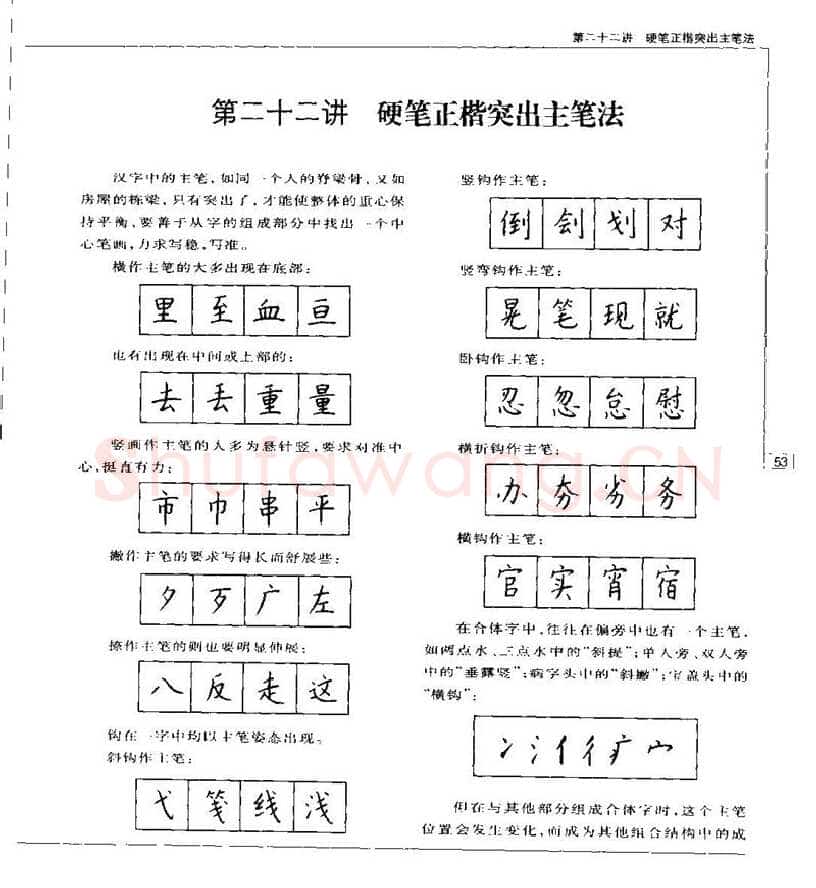 第二十二讲 硬笔正楷突出主笔法
第二十二讲 硬笔正楷突出主笔法
汉字中的主笔,如同一个人的脊梁骨、又如
房屋的栋梁,只有突出了,才能使整体的重心保
持平衡,要善于从字的组成部分中找出一个中
心笔画,力求写稳,写准。
横作主笔的大多出现在底部:
里 至 血 亘
也有出现在中间或上部的:
去 丢 重 量
竖画作主笔的大多为悬针竖,要求对准中
心,挺直有力:
市 巾 串 平
撇作主笔的要求写得长而舒展些:
夕 歹 广 左
捺作主笔的则也要明显伸展:
八 反 走 这
钩在一字中均以主笔姿态出现。
斜钩作主笔:
弋 笺 线 浅
竖钩作主笔:
倒 刽 划 对
竖弯钩作主笔:
晃 笔 现 就
卧钩作主笔:
忍 忽 怠 慰
横折钩作主笔:
办 夯 劣 务
横钩作主笔:
官 实 宵 宿
在合体字中,往往在偏旁中也有一个主笔,
如两点水、三点水中的“斜提”;单人旁、双人旁
中的“垂露竖”;病字头中的“斜撇”;宝盖头中的
“横钩”:
冫氵亻彳疒宀
但在与其他部分组成合体字时,这个主笔
位置会发生变化,而成为其他组合结构中的成
53
Shufawang.CN